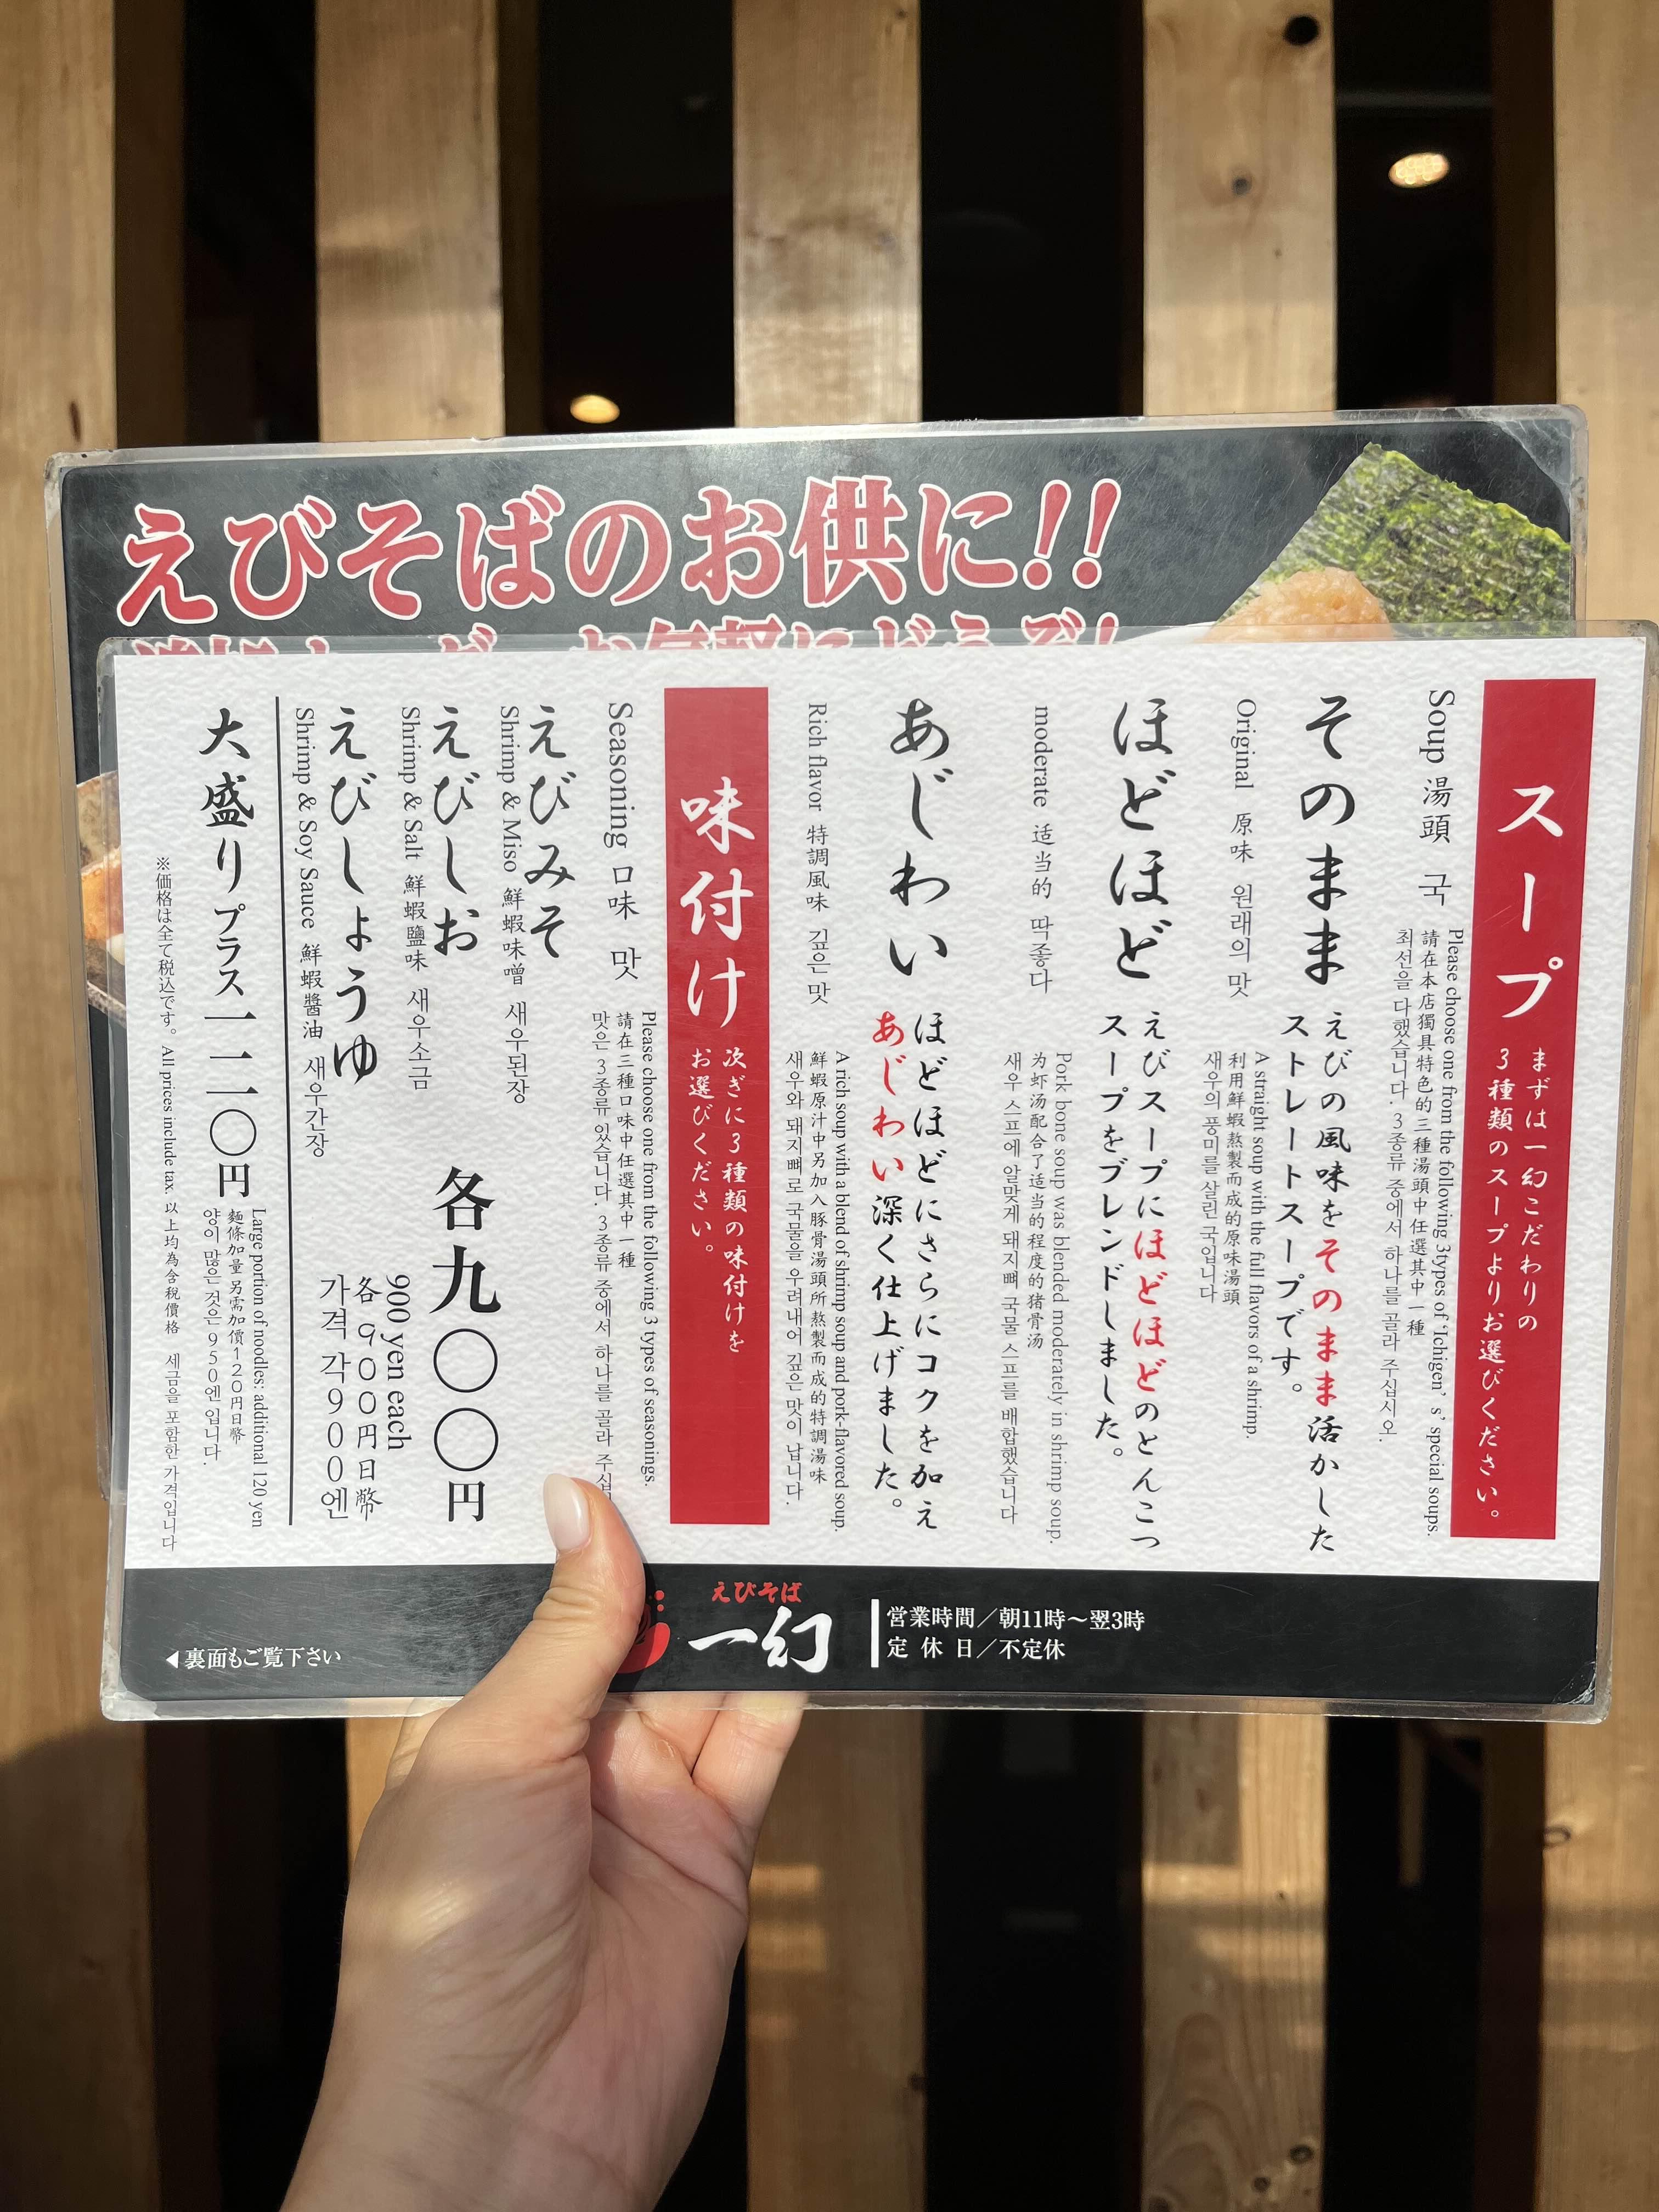 えびそばのお供に!!
スープ
まずは一幻こだわりの
3種類のスープよりお選びください。
Soup 湯頭 국
Please choose one from the following 3types of 'Ichigen' s' special soups.
請在本店獨具特色的三種湯頭中任選其中一種
최선을 다했습니다. 3종류 중에서 하나를 골라 주십시오.
そのまま
えびの風味をそのまま活かした
ストレートスープです。
Original 原味 원래의 맛
A straight soup with the full flavors of a shrimp.
利用鮮蝦熬製而成的原味湯頭
새우의 풍미를 살린 국입니다
ほどほど
えびスープにほどほどのとんこつ
スープをブレンドしました。
moderate 适当的 딱좋다
Pork bone soup was blended moderately in shrimp soup.
为虾汤配合了适当的程度的猪骨汤
새우 스프에 알맞게 돼지뼈 국물 스프를 배합했습니다
あじわい
ほどほどにさらにコクを加え
あじわい深く仕上げました。
Rich flavor 特調風味 깊은 맛
A rich soup with a blend of shrimp soup and pork-flavored soup.
鮮蝦原汁中另加入豚骨湯頭所熬製而成的特調湯味
새우와 돼지뼈로 국물을 우려내어 깊은 맛이 납니다.
味付け
次ぎに3種類の味付けを
お選びください。
Seasoning 口味 맛
Please choose one from the following 3 types of seasonings.
請在三種口味中任選其中一種
맛은 3종류 있습니다. 3종류 중에서 하나를 골라 주십
えびみそ
Shrimp & Miso 鮮蝦味噌 새우된장
えびしお
Shrimp & Salt 鮮蝦鹽味 새우소금
えびしょうゆ
Shrimp & Soy Sauce 鮮蝦醬油 새우간장
各九〇〇円
900 yen each
各900円日幣
가격 각900엔
大盛りプラス一二〇円
Large portion of noodles: additional 120 yen
麵條加量另需加價120円日幣
양이 많은 것은 950엔 입니다.
※価格は全て税込です。 All prices include tax. 以上均為含税價格 세금을 포함한 가격입니다
◀裏面もご覧下さい
えびそば
一幻
営業時間／朝11時～翌3時
定休日／不定休